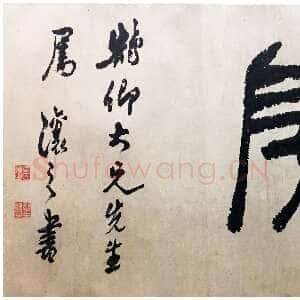 卿大兄先生
属讓之書
Shufawang.CN